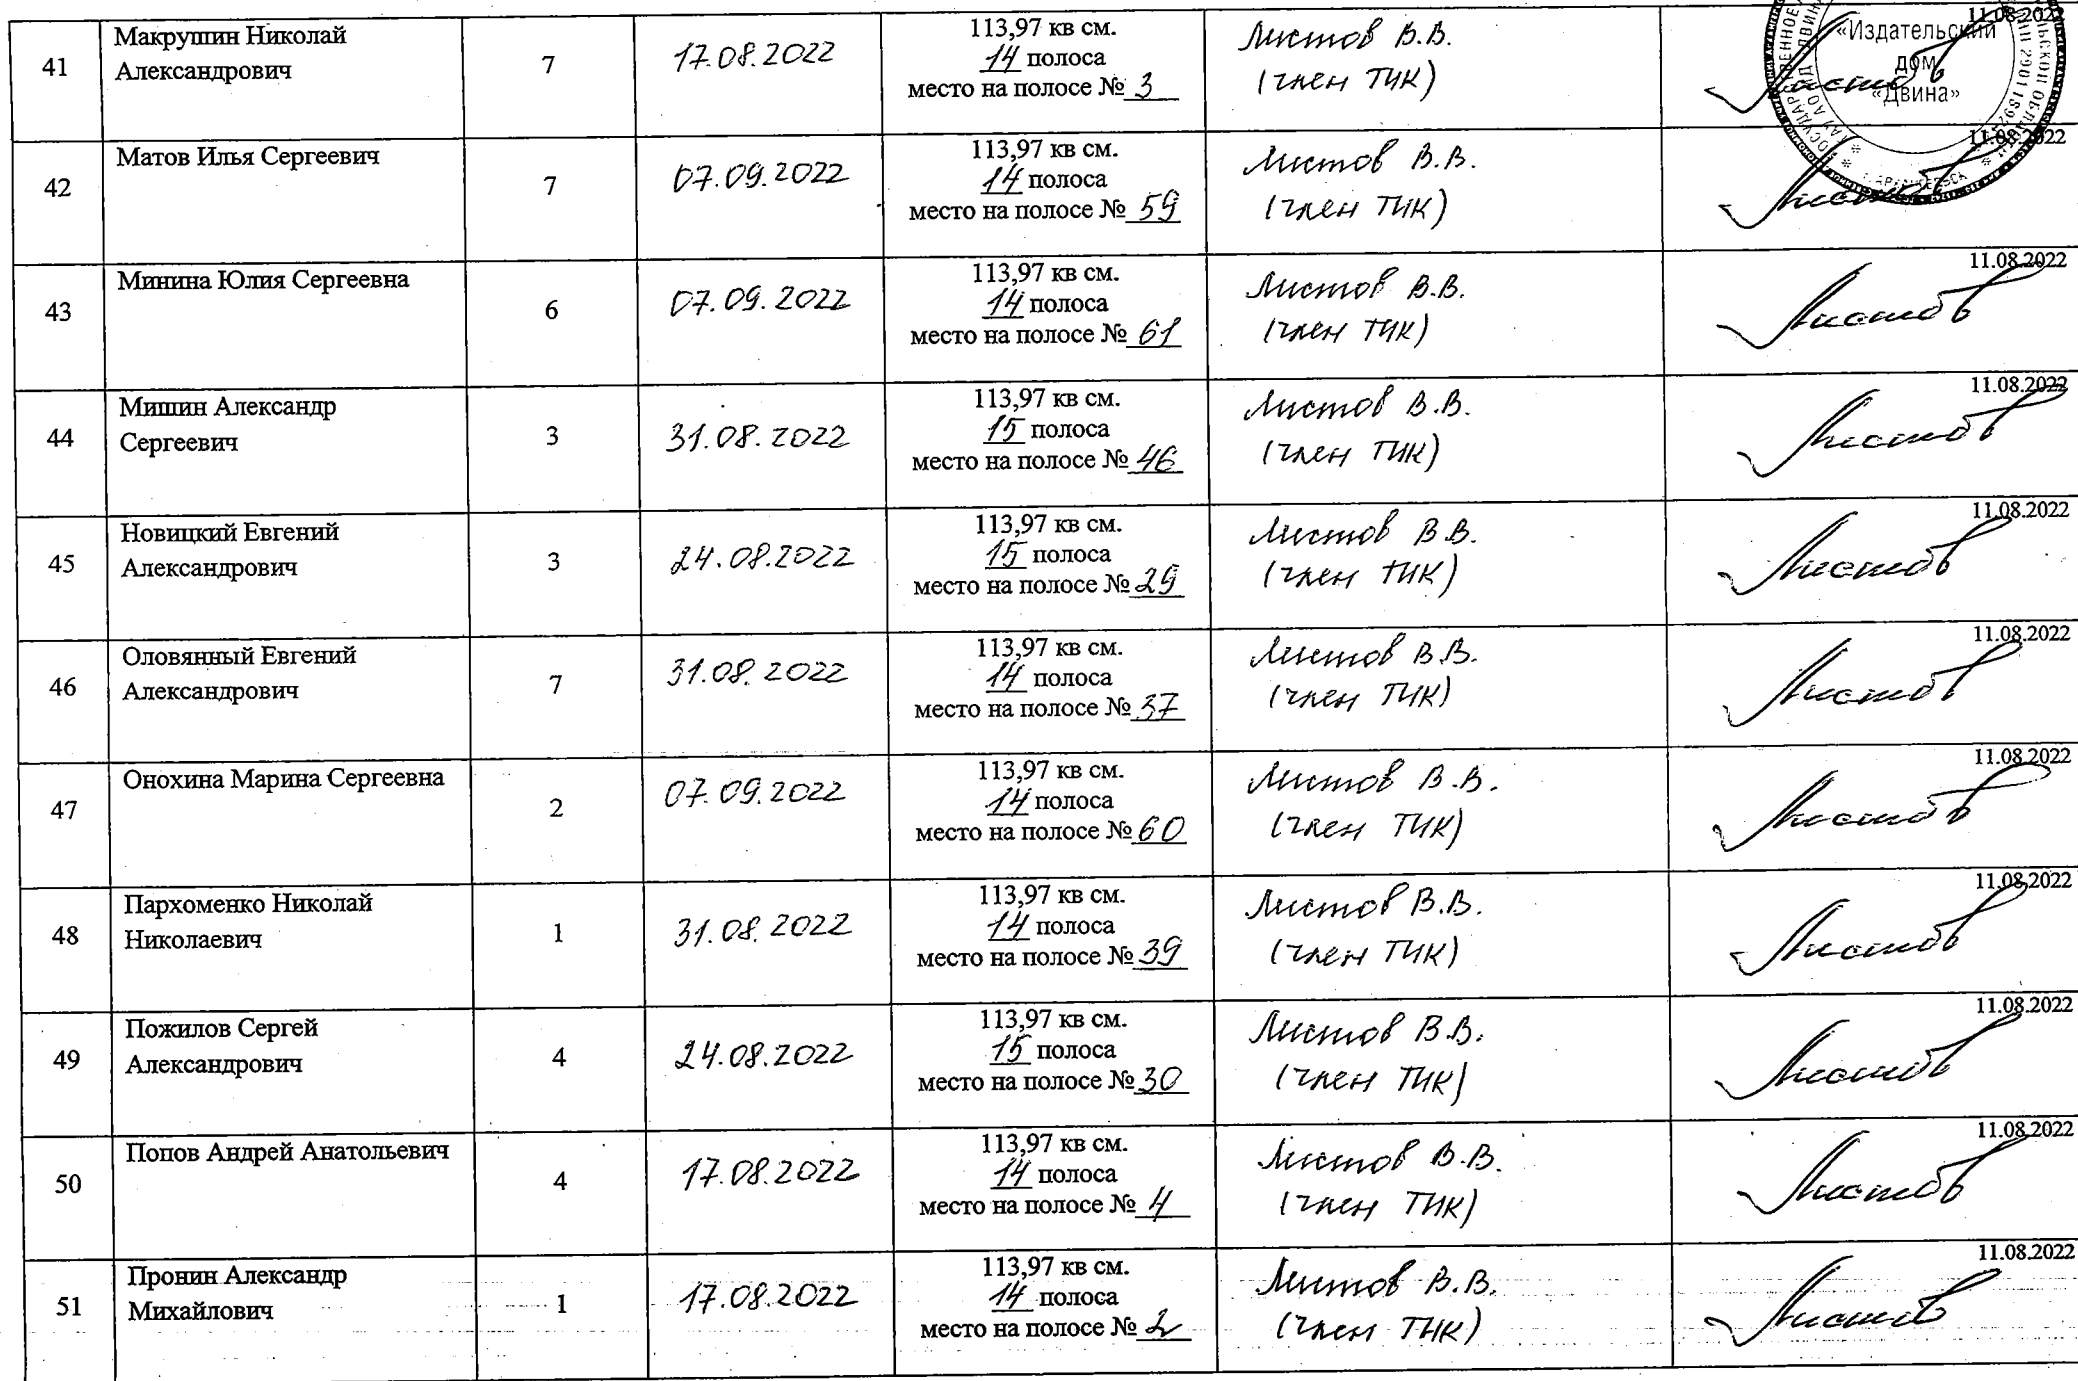 41
Макрушин Николай
Александрович
7
17.08.2022
113,97 кв см.
14 полоса
место на полосе № 3
Листов В.В.
(член ТИК)
11.08.2022
Листов
«Издательский
дом
«Двина»
42
Матов Илья Сергеевич
7
07.09.2022
113,97 кв см.
14 полоса
место на полосе № 59
Листов В.В.
(член ТИК)
11.08.2022
Листов
43
Минина Юлия Сергеевна
6
07.09.2022
113,97 кв см.
14 полоса
место на полосе № 61
Листов В.В.
(член ТИК)
11.08.2022
Листов
44
Мишин Александр
Сергеевич
3
31.08.2022
113,97 кв см.
15 полоса
место на полосе № 46
Листов В.В.
(член ТИК)
11.08.2022
Листов
45
Новицкий Евгений
Александрович
3
24.08.2022
113,97 кв см.
15 полоса
место на полосе № 29
Листов В.В.
(член ТИК)
11.08.2022
Листов
46
Оловянный Евгений
Александрович
7
31.08.2022
113,97 кв см.
14 полоса
место на полосе № 37
Листов В.В.
(член ТИК)
11.08.2022
Листов
47
Онохина Марина Сергеевна
2
07.09.2022
113,97 кв см.
14 полоса
место на полосе № 60
Листов В.В.
(член ТИК)
11.08.2022
Листов
48
Пархоменко Николай
Николаевич
1
31.08.2022
113,97 кв см.
14 полоса
место на полосе № 39
Листов В.В.
(член ТИК)
11.08.2022
Листов
49
Пожилов Сергей
Александрович
4
24.08.2022
113,97 кв см.
15 полоса
место на полосе № 30
Листов В.В.
(член ТИК)
11.08.2022
Листов
50
Попов Андрей Анатольевич
4
17.08.2022
113,97 кв см.
14 полоса
место на полосе № 4
Листов В.В.
(член ТИК)
11.08.2022
Листов
51
Пронин Александр
Михайлович
1
17.08.2022
113,97 кв см.
14 полоса
место на полосе № 2
Листов В.В.
(член ТИК)
11.08.2022
Листов